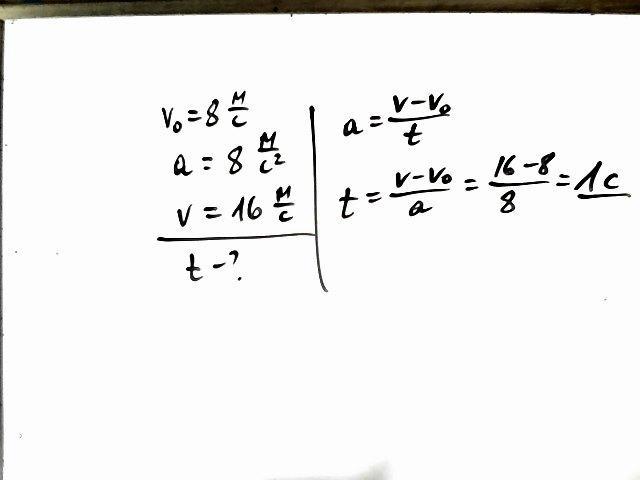 v₀ = 8 м/с
a = 8 м/с²
v = 16 м/с
t - ?
a = (v - v₀)/t
t = (v - v₀)/a = (16 - 8)/8 = 1с